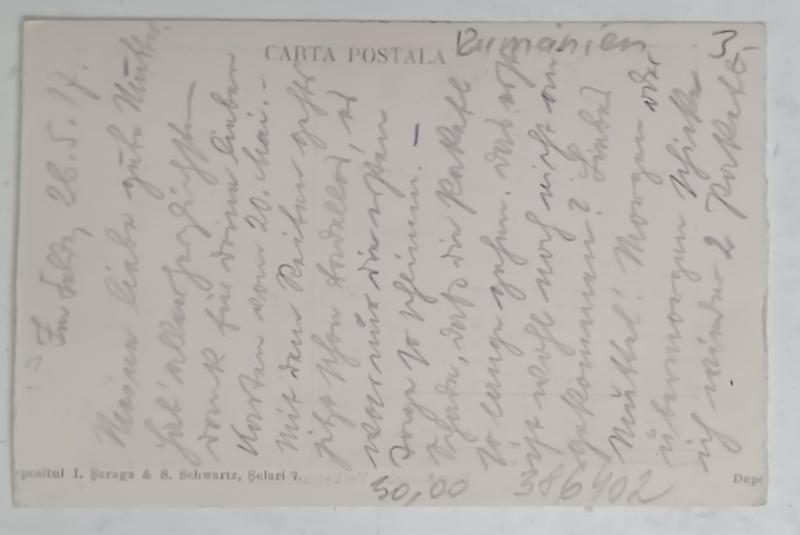 CARTA POSTALA
Rumänien
3.-
Im Felde, 26.5.17.
Meine liebe gute Mutter
Hab' allerherzlichsten
Dank für deine lieben
Karten vom 20. Mai.-
Mit dem Reiten geht
jetzt schon tadellos, es
war nur die ersten
Tage so schlimm. -
Schade, daß die Pakete
so lange gehen. Das erste
ist wohl noch nicht an
gekommen? Liebes
Muttel! Morgen oder
übermorgen schicke
ich wieder 2 Pakete
pozitul I. Șaraga & S. Schwartz, Șelari 7.
Dep
30,00
386402